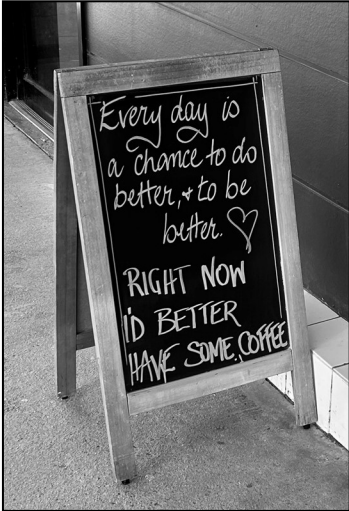 Every day is
a chance to do
better, + to be
better. ♡
RIGHT NOW
I'D BETTER
HAVE SOME COFFEE